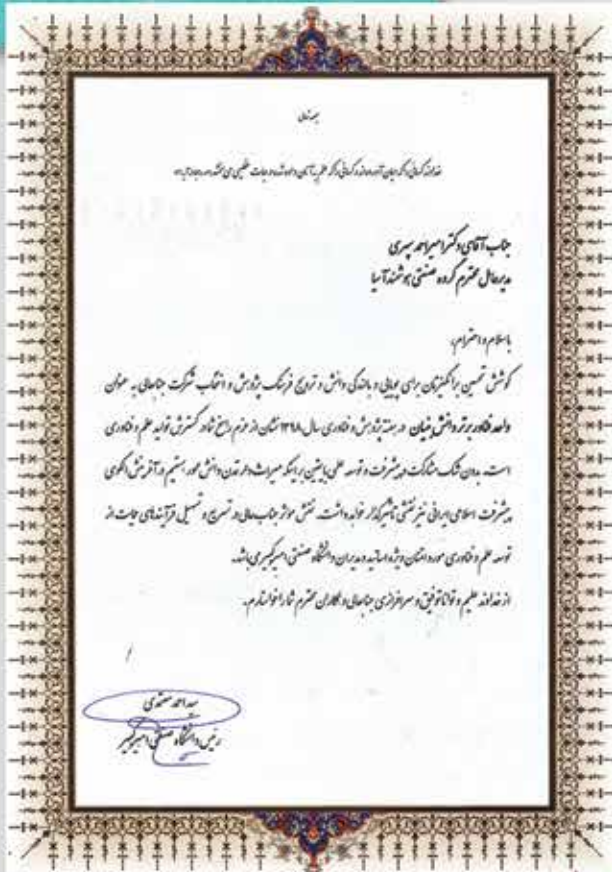 بسمه تعالی
جناب آقای دکتر امیر احمد سپهری
مدیرعامل محترم گروه صنعتی هوشمند آسیا
با سلام و احترام،
کوشش تحسین برانگیزتان برای پویایی و بالندگی دانش و ترویج فرهنگ پژوهش و انتخاب شرکت جنابعالی به عنوان
واحد فناور برتر دانش بنیان در هفته پژوهش و فناوری سال ۱۳۹۸ نشان از عزم راسخ شما در گسترش تولید علم و فناوری
است. بدون شک مشارکت در پیشرفت و توسعه علمی با یقین بر اینکه میراث‌دار تمدن دانش محور هستیم در آفرینش الگوی
پیشرفت اسلامی ایرانی نیز نقشی تاثیرگذار خواهد داشت. نقش موثر جناب عالی در تسریع و تسهیل فرآیندهای حمایت از
توسعه علم و فناوری مورد امتنان ویژه اساتید و مدیران دانشگاه صنعتی امیرکبیر می باشد.
از خداوند علیم و توانا توفیق و سرافرازی جنابعالی و همکاران محترم شما را خواستارم.
سید احمد معتمدی
رئیس دانشگاه صنعتی امیرکبیر